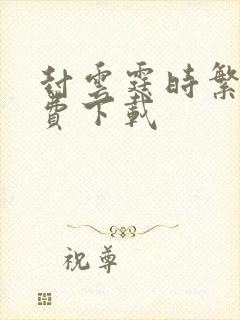 封雲霆時繁
費下載
祝尊